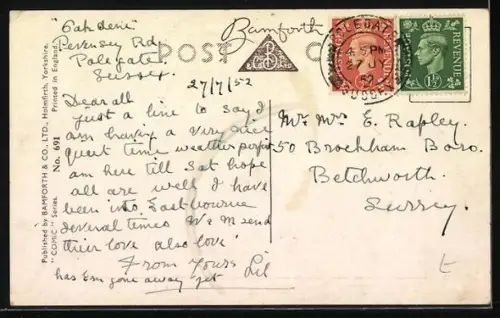 "Oakdene"
Pevensey Rd
Polegate
Sussex
Bamforth
POST C
27/7/52
Dear all
just a line to say I
am having a very nice
quiet time weather perfect
am here till Sat hope
all are well I have
been into Eastbourne
several times W & M send
their love also love
From Yours Lil
has Em gone away yet
Mr. Mrs. E. Rapley.
50 Brockham Boro.
Betchworth.
Surrey.
POLEGATE
PM
27 JY
52
SUSSEX
POSTAGE REVENUE
1½
Published by BAMFORTH & CO., LTD., Holmfirth, Yorkshire.
"COMIC" Series. No. 691 Printed in England.